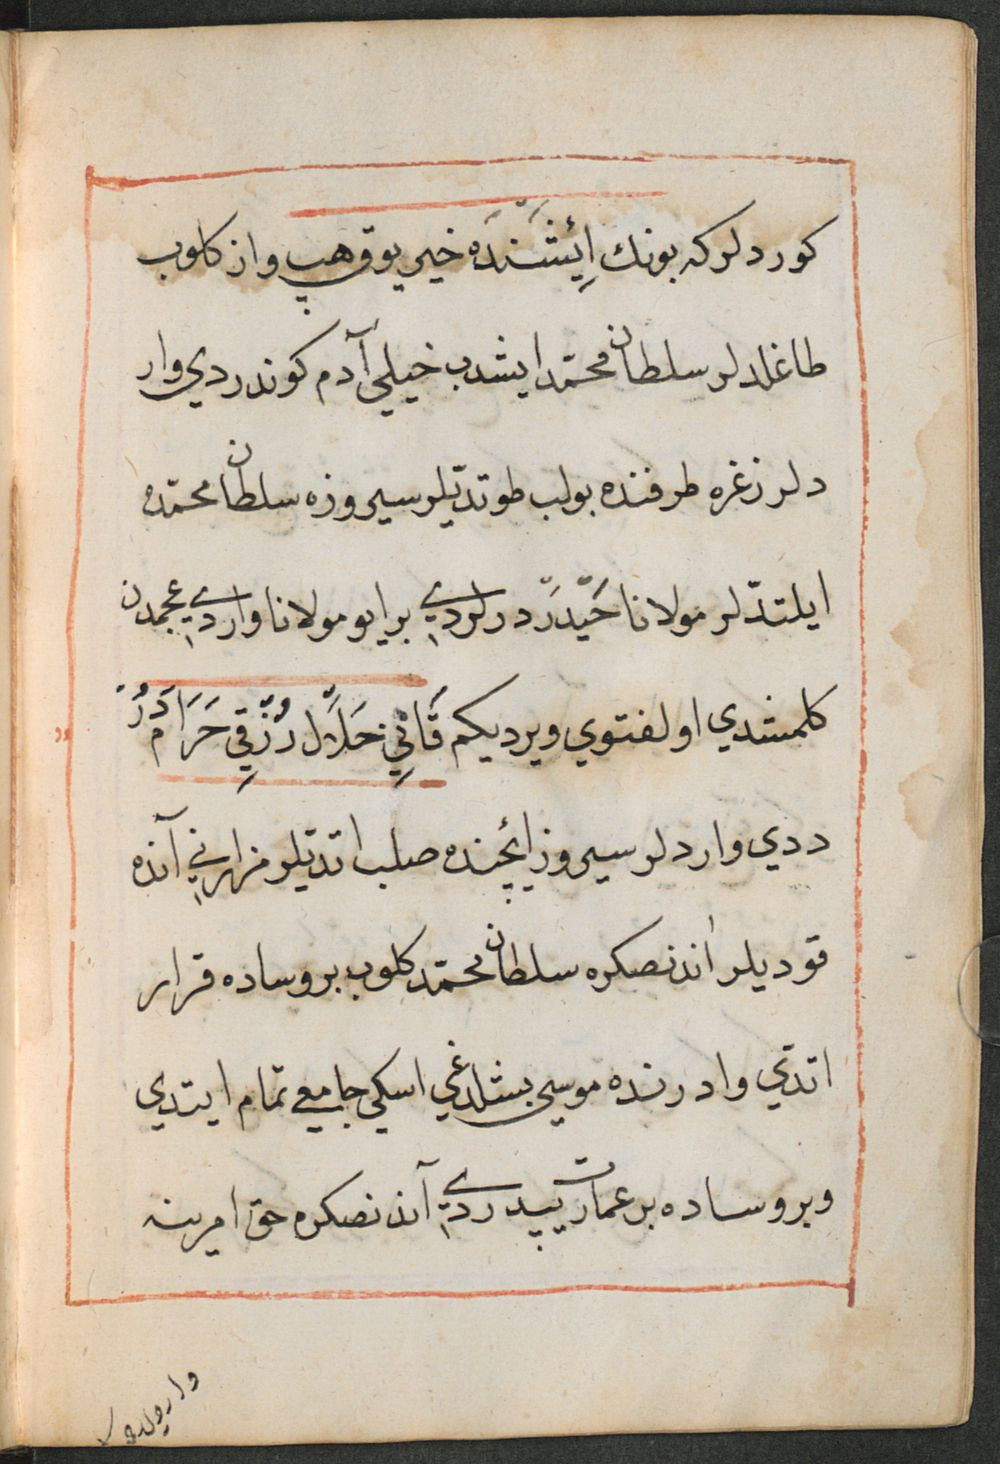 كوردلر كه بونك اِيئشَنْدَه خيي يوق هپ واز كلوب
طاغلدلر سلطان محمّد ايشدب خيلي آدم كوندردي وار
دلر زغره طرفنده بولب طوتدتيلر سيروزه سلطان محمّده
ايلتدّلر مولانا حَيْدَرْ درلردي بر ايو مولانا واردي عجمدن
كلمشدي اول فتوي ويرديكم قَانِي حَلَال رُزْقِي حَرَامْدُرْ
ددي واردلر سيروز ايچنده صلب اتدتيلر مزارني آنده
قوديلر اندنصكره سلطان محمّد كلوب بروساده قرار
اتدي وادرنده موسي بشلدغي اسكي جامعي تمام ايتدي
وبروساده بر عمارت يپدردي آندنصكره حق امرينه